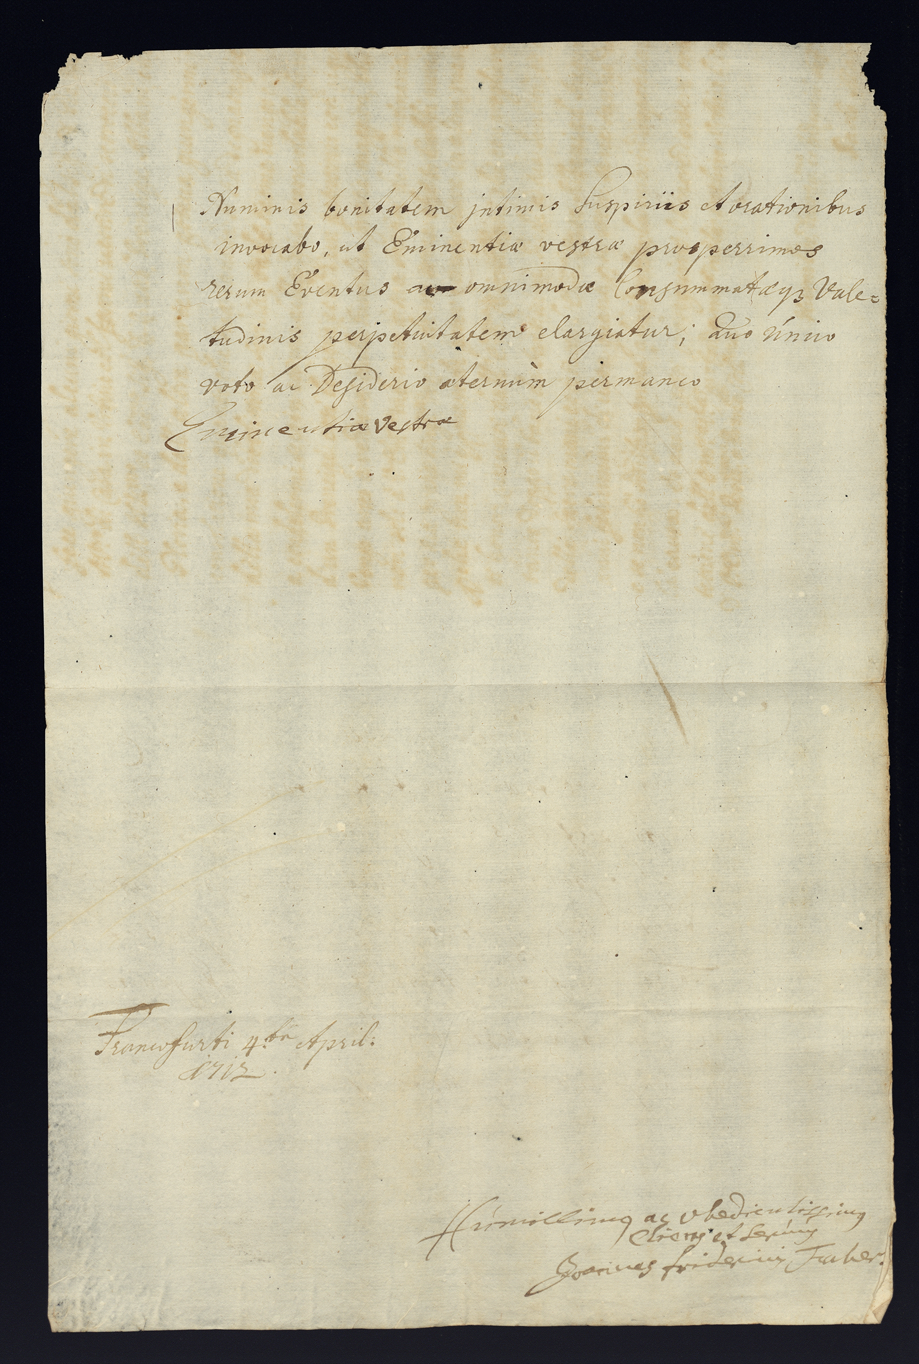 Numinis bonitatem jntimis Suspiriis et orationibus
invocabo, ut Eminentiæ vestræ prosperrimos
rerum Eventus ac omnimodæ Consummatæq3 Vale=
tudinis perpetuitatem elargiatur; quo único
voto ac Desiderio æternùm permaneo
Eminentiæ Vestræ
Francofurti 4.ta April:
1712.
Húmillimus ac obedientissimus
Cliens et Servus
Joannes fridericus Faber.